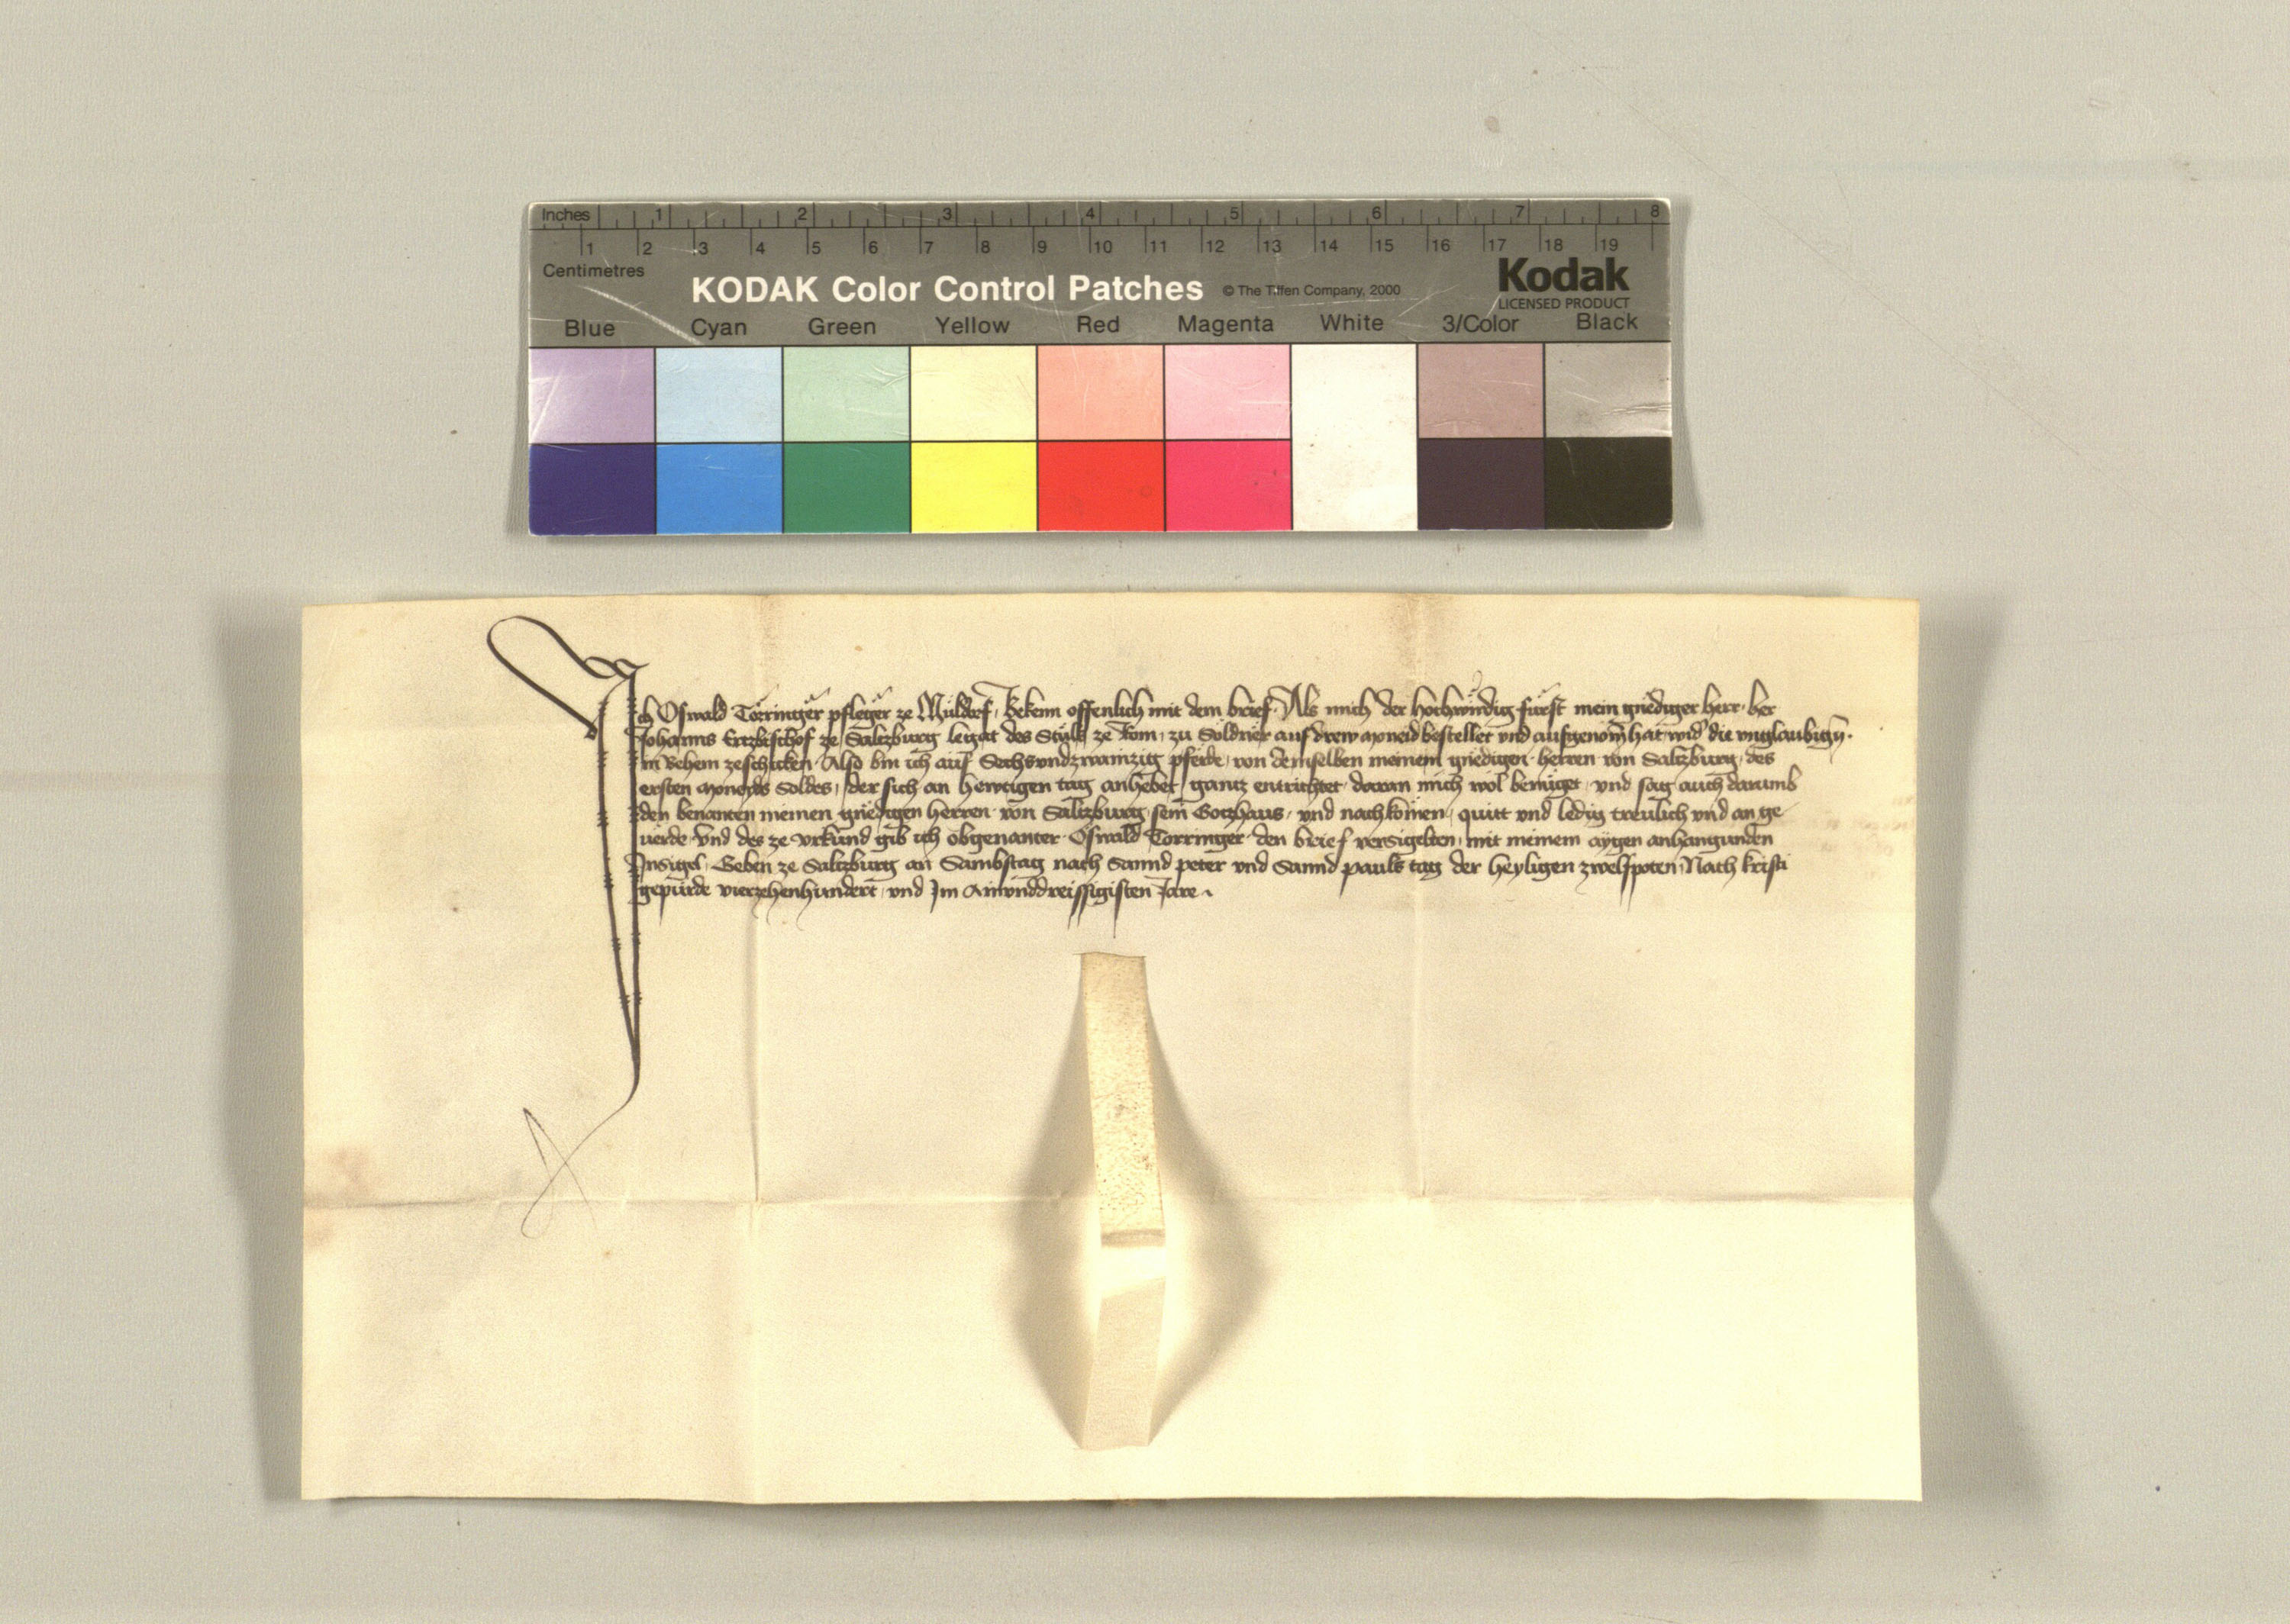 Inches 1 2 3 4 5 6 7 8
1 2 3 4 5 6 7 8 9 10 11 12 13 14 15 16 17 18 19
Centimetres
KODAK Color Control Patches © The Tiffen Company, 2000 Kodak
LICENSED PRODUCT
Blue Cyan Green Yellow Red Magenta White 3/Color Black
Ich Oswald Törringer pfleger ze Müldorf, Bekenn offenlich mit dem brief. Als mich der hochwirdig fürst mein gnediger herr her
Johanns Ertzbischof ze Saltzburg legat des Stuls ze Rom, zu Soldner auf drew moneid bestellet vnd aufgenom̄ hat wid̕ die vnglaubign̄
in Behem zeschicken Also bin ich auf Sechsvndzwainzig pferde, von demselben meinem gnedigen herren von Saltzburg, des
ersten moneyds Soldes, der sich an hewtigen tag anhebet, gantz entrichtet daran mich wol benüget, vnd sag auch darumb
den benanten meinen gnedigen herren von Saltzburg sein Gotzhaus, vnd nachkomen, quitt vnd ledig treulich vnd an ge
uerde Vnd des ze vrkund gib ich obgenanter Oswald Torringer den brief versigelten mit meinem aygen anhangunden
Insigel, Geben ze Saltzburg an Sambstag nach Sannd peter vnd Sannd pauls tag der heyligen zwelfpoten Nach kristi
gepürde vierzehenhundert vnd Im Ainvnddreissigisten Jare